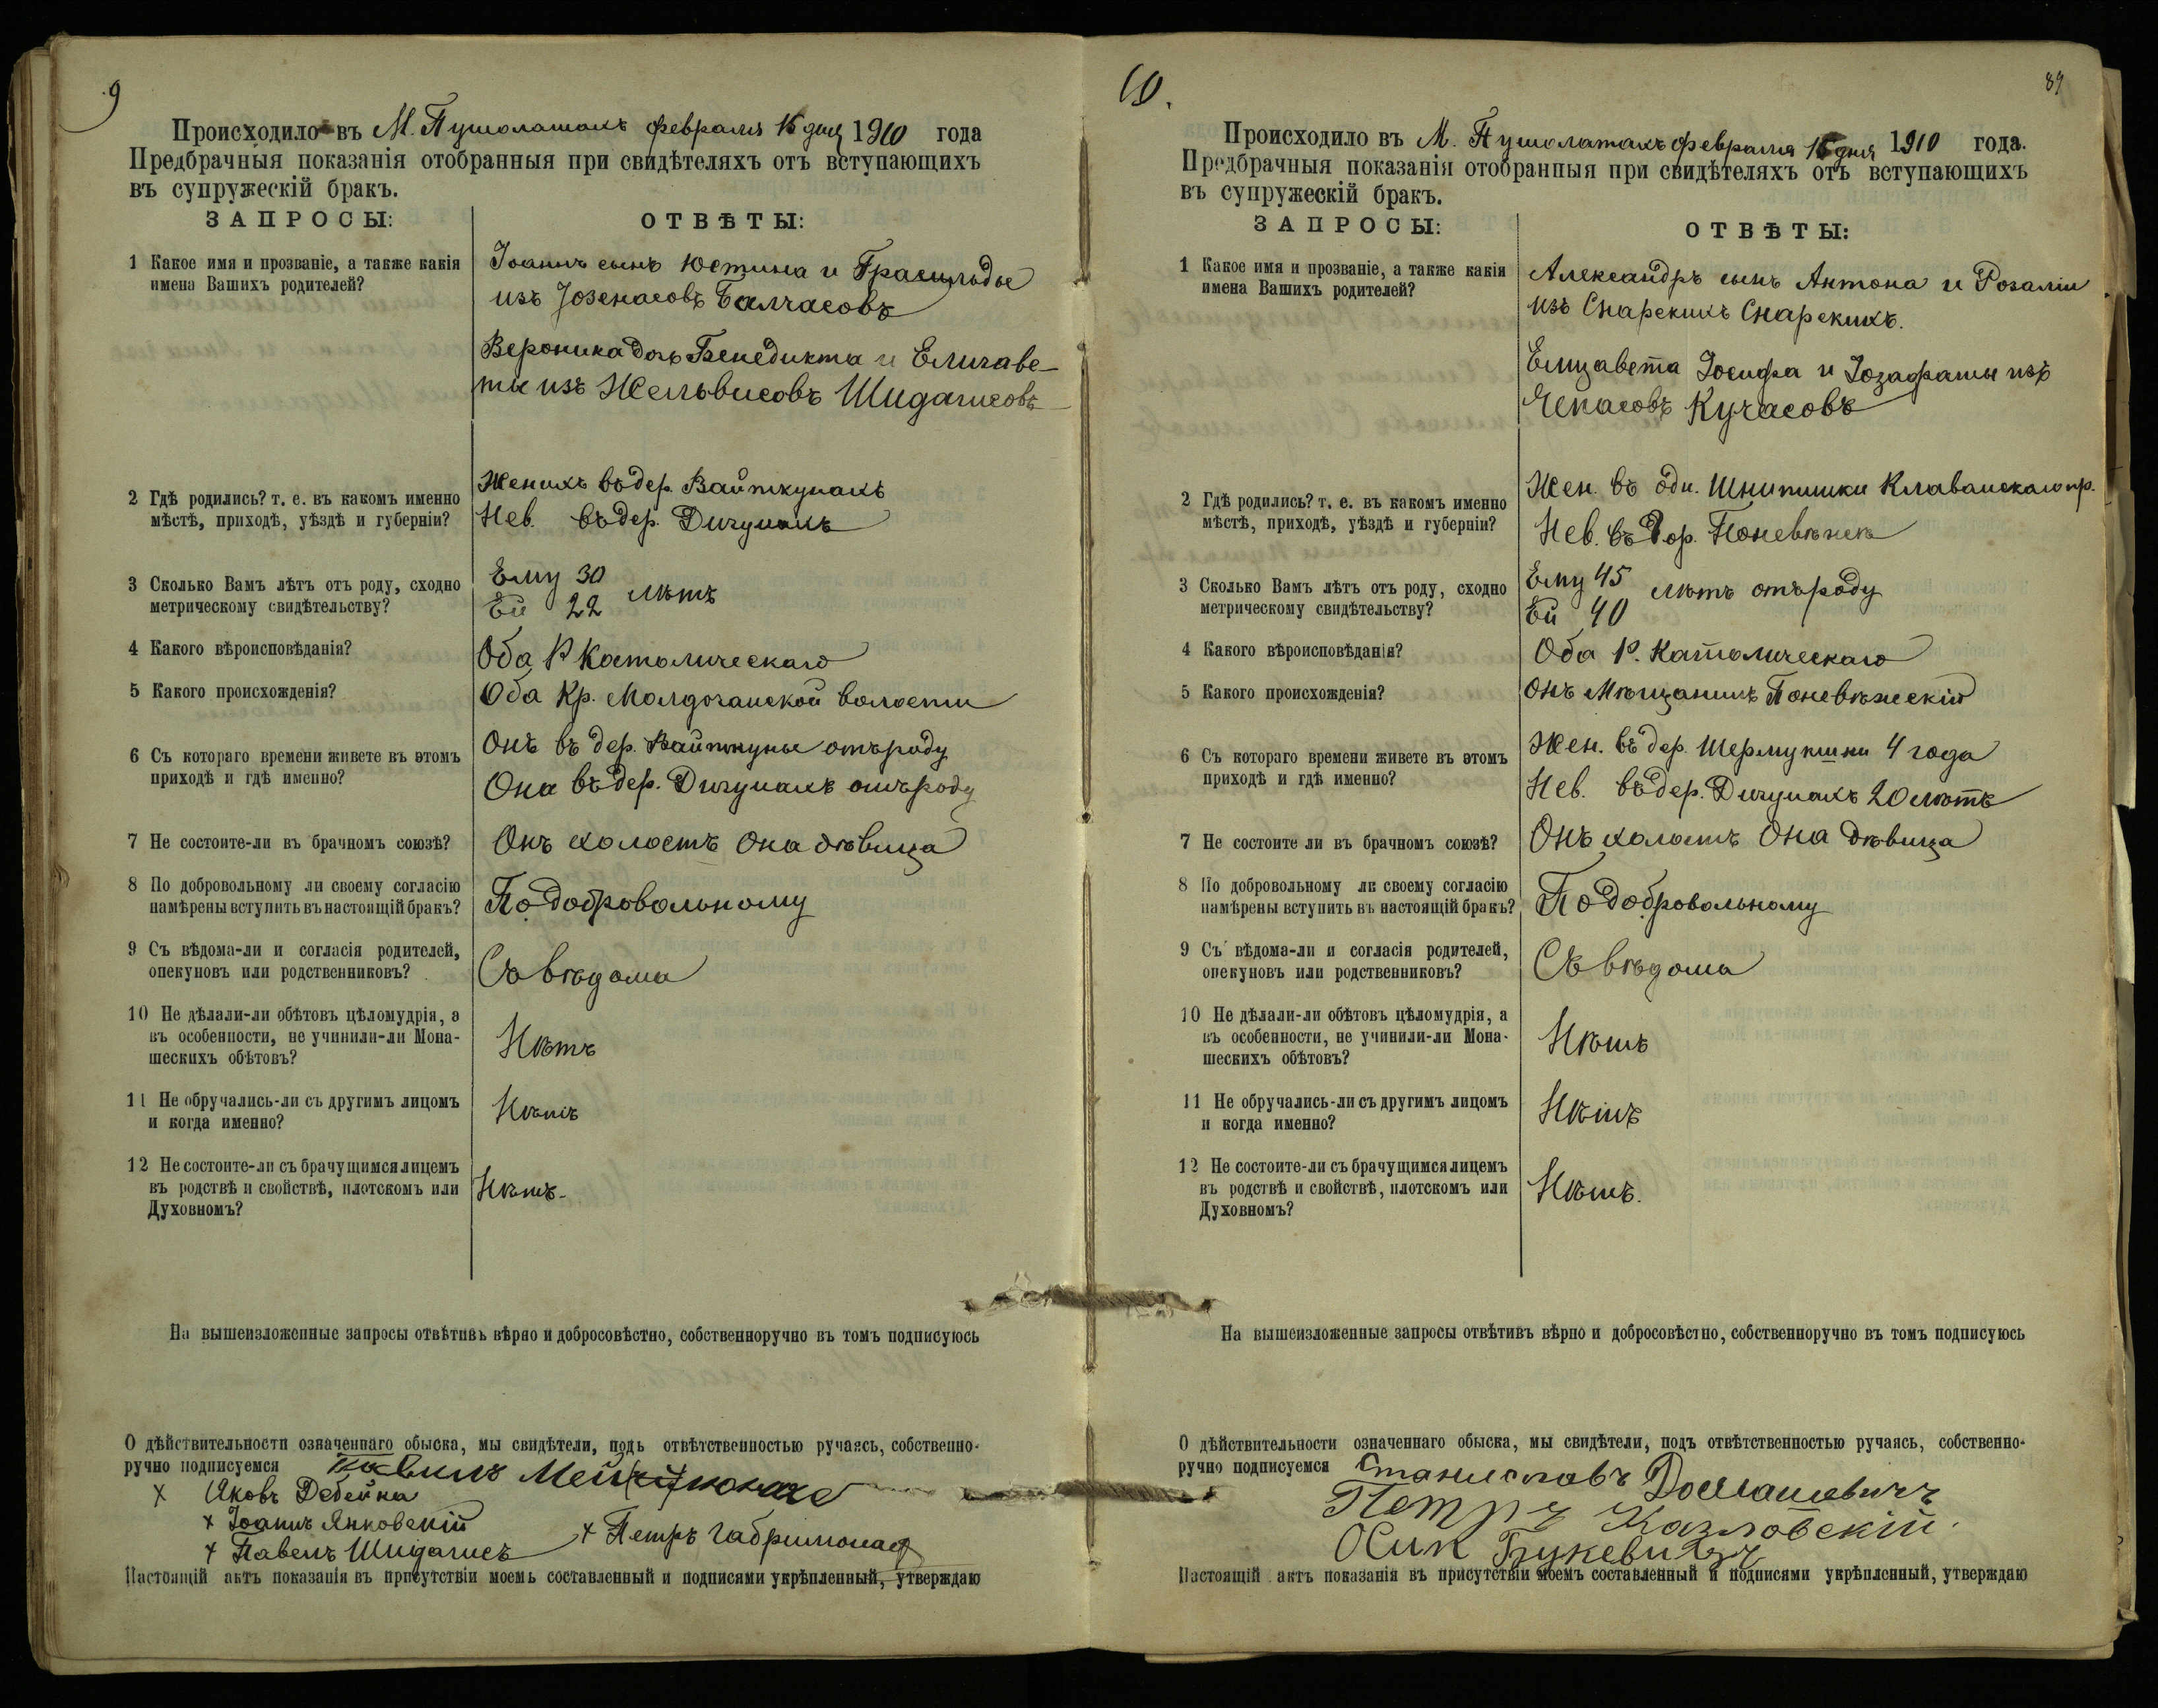 9
Происходило въ М. Пушолатахъ февраля 15 дня 1910 года
Предбрачныя показанія отобранныя при свидѣтеляхъ отъ вступающихъ
въ супружескій бракъ.
ЗАПРОСЫ: ОТВѢТЫ:
1 Какое имя и прозваніе, а также какія
имена Вашихъ родителей?
Іоаннъ сынъ Юстина и
изъ Балчасовъ
Вероника дочь Бенедикта и Елизаве-
ты изъ Жельвисовъ Шидагисовъ
2 Гдѣ родились? т. е. въ какомъ именно
мѣстѣ, приходѣ, уѣздѣ и губерніи?
Женихъ въ дер. Вайткунахъ
Нев. въ дер. Дичунахъ
3 Сколько Вамъ лѣтъ отъ роду, сходно
метрическому свидѣтельству?
Ему 30 лѣтъ
Ей 22
4 Какого вѣроисповѣданія?
Оба Р Католическаго
5 Какого происхожденія?
Оба Кр. волости
6 Съ котораго времени живете въ этомъ
приходѣ и гдѣ именно?
Онъ въ дер. Вайткуны отъ роду
Она въ дер. Дичунахъ отъ роду
7 Не состоите-ли въ брачномъ союзѣ?
Онъ холостъ Она дѣвица
8 По добровольному ли своему согласію
намѣрены вступить въ настоящій бракъ?
По добровольному
9 Съ вѣдома-ли и согласія родителей,
опекуновъ или родственниковъ?
Съ вѣдома
10 Не дѣлали-ли обѣтовъ цѣломудрія, а
въ особенности, не учинили-ли Мона-
шескихъ обѣтовъ?
Нѣтъ
11 Не обручались-ли съ другимъ лицомъ
и когда именно?
Нѣтъ
12 Не состоите-ли съ брачущимся лицемъ
въ родствѣ и свойствѣ, плотскомъ или
Духовномъ?
Нѣтъ.
На вышеизложенные запросы отвѣтивъ вѣрно и добросовѣстно, собственноручно въ томъ подписуюсь
О дѣйствительности означеннаго обыска, мы свидѣтели, подъ отвѣтственностью ручаясь, собственно-
ручно подписуемся
× Яковъ Дебейка
× Іоаннъ Янковскій
× Павелъ Шидагисъ × Петръ
Настоящій актъ показанія въ присутствіи моемъ составленный и подписями укрѣпленный, утверждаю
10.
89
Происходило въ М. Пушолатахъ февраля 15 дня 1910 года.
Предбрачныя показанія отобранныя при свидѣтеляхъ отъ вступающихъ
въ супружескій бракъ.
ЗАПРОСЫ: ОТВѢТЫ:
1 Какое имя и прозваніе, а также какія
имена Вашихъ родителей?
Александръ сынъ Антона и Розаліи
изъ Снарскихъ Снарскихъ.
Елизавета Іосифа и Іозафаты изъ
Чепасовъ Кучасовъ
2 Гдѣ родились? т. е. въ какомъ именно
мѣстѣ, приходѣ, уѣздѣ и губерніи?
Жен. въ одн. Шнипишки Клованскаго пр.
Нев. въ гор. Поневѣжѣ
3 Сколько Вамъ лѣтъ отъ роду, сходно
метрическому свидѣтельству?
Ему 45 лѣтъ отъ роду
Ей 40
4 Какого вѣроисповѣданія?
Оба Р. Католическаго
5 Какого происхожденія?
Онъ Мѣщанинъ Поневѣжскій
6 Съ котораго времени живете въ этомъ
приходѣ и гдѣ именно?
Жен. въ дер. Шермукшни 4 года
Нев. въ дер. Дичунахъ 20 лѣтъ
7 Не состоите ли въ брачномъ союзѣ?
Онъ холостъ Она дѣвица
8 По добровольному ли своему согласію
намѣрены вступить въ настоящій бракъ?
По добровольному
9 Съ вѣдома-ли и согласія родителей,
опекуновъ или родственниковъ?
Съ вѣдома
10 Не дѣлали-ли обѣтовъ цѣломудрія, а
въ особенности, не учинили-ли Мона-
шескихъ обѣтовъ?
Нѣтъ
11 Не обручались-ли съ другимъ лицомъ
и когда именно?
Нѣтъ
12 Не состоите-ли съ брачущимся лицемъ
въ родствѣ и свойствѣ, плотскомъ или
Духовномъ?
Нѣтъ.
На вышеизложенные запросы отвѣтивъ вѣрно и добросовѣстно, собственноручно въ томъ подписуюсь
О дѣйствительности означеннаго обыска, мы свидѣтели, подъ отвѣтственностью ручаясь, собственно-
ручно подписуемся Станиславъ Домашевичъ
Петръ Казловскій.
Осип Буkевичъ
Настоящій актъ показанія въ присутствіи моемъ составленный и подписями укрѣпленный, утверждаю